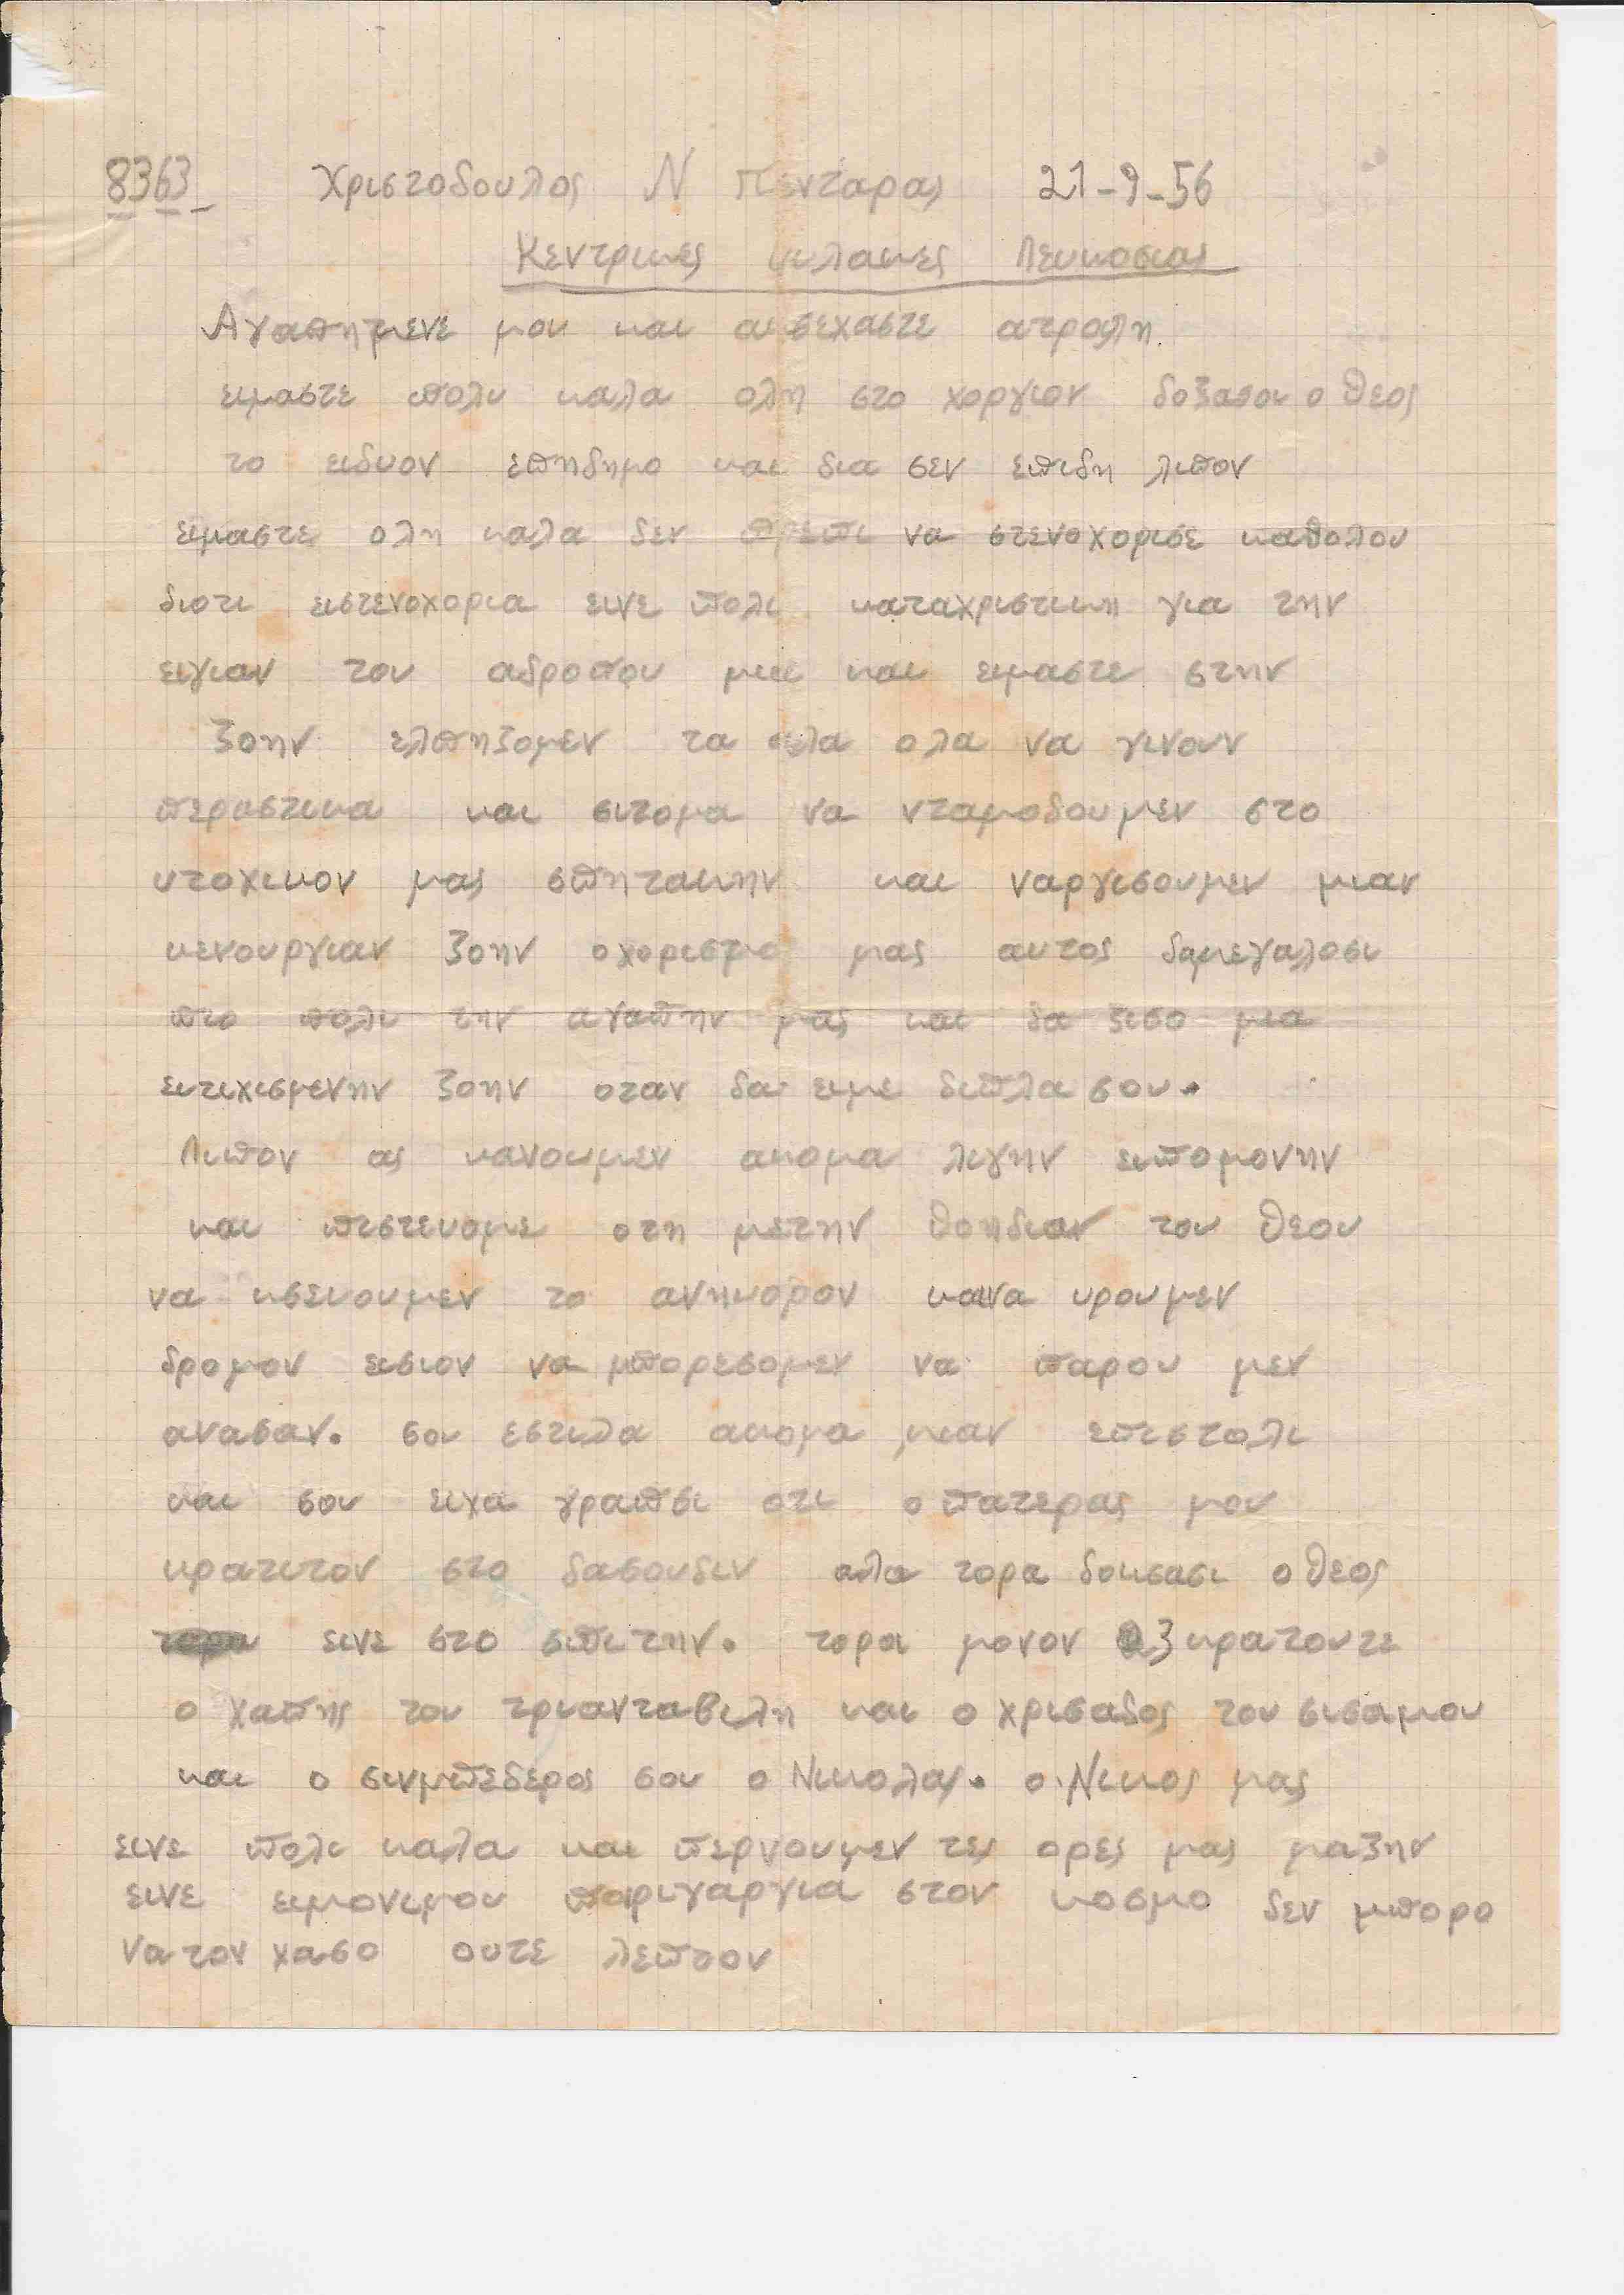 8363 Χριστοδουλος Ν Πενταρας 21-9-56
Κεντρικες φυλακες Λευκοσιας
Αγαπητμενε μου και αισεχαστε ατροφη.
ειμαστε πολυ καλα ολη στο χοργιον δοξασοι ο θεος
το ειδυον επηδημο και δια σεν επιδη λιπον
ειμαστε ολη καλα δεν πρεπι να στενοχορισε καθολου
διοτι ειστενοχορια εινε πολι καταχριστικη για την
ειγιαν του αδροπου μια και ειμαστε στην
ζοην ελπηζομεν τα αλα ολα να γινουν
περαστικα και σιτομα να νταμοδουμεν στο
υτοχικον μας σπητακην και ναργισουμεν μιαν
κενουργιαν ζοην οχορισμο μας αυτος δαμεγαλοσι
πιο πολι την αγαπην μας και δα ζισο μια
ευτιχισμενην ζοην οταν δα ειμε διπλα σου.
Λιπον ας κανουμεν ακομα λιγην ειπομονην
και πιστευομε οτη μετην βοηδιαν του θεου
να κσευουμεν το ανηκορον και να υρουμεν
δρομον εισιον να μπορεσομεν να παρου μεν
ανασαν. σου εστιλα ακομα μιαν επιστολι
και σου ειχα γραπσι οτι ο πατερας μου
κρατιτον στο δασουδιν αλα τορα δοκσασι ο θεος
εινε στο σπιτην. τορα μονον 3 κρατουτε
ο χαπης του τριανταβιλη και ο χρισαδος του σισαμου
και ο σινμπεδερος σου ο Νικολας. ο Νικος μας
εινε πολι καλα και περνουμεν τες ορες μας μαζην
εινε ειμονιμου παριγαργια στον κοσμο δεν μπορο
να τον χασο ουτε λεπτον